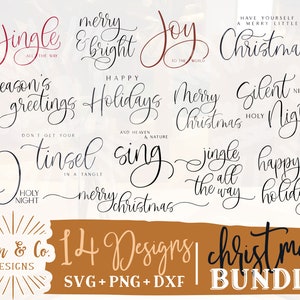 Jingle
ALL THE WAY
merry
& bright
Joy
TO THE WORLD
HAVE YOURSELF
A MERRY LITTLE
Christmas
season's
greetings
HAPPY
Holidays
Merry
Christmas
Silent
Night
HOLY
Night
DON'T GET YOUR
tinsel
IN A TANGLE
AND HEAVEN & NATURE
sing
jingle
all the
way
happy
holiday
O
HOLY
NIGHT
merry
christmas
& Co.
DESIGNS
14 Designs
SVG + PNG + DXF
christmas
BUNDLE